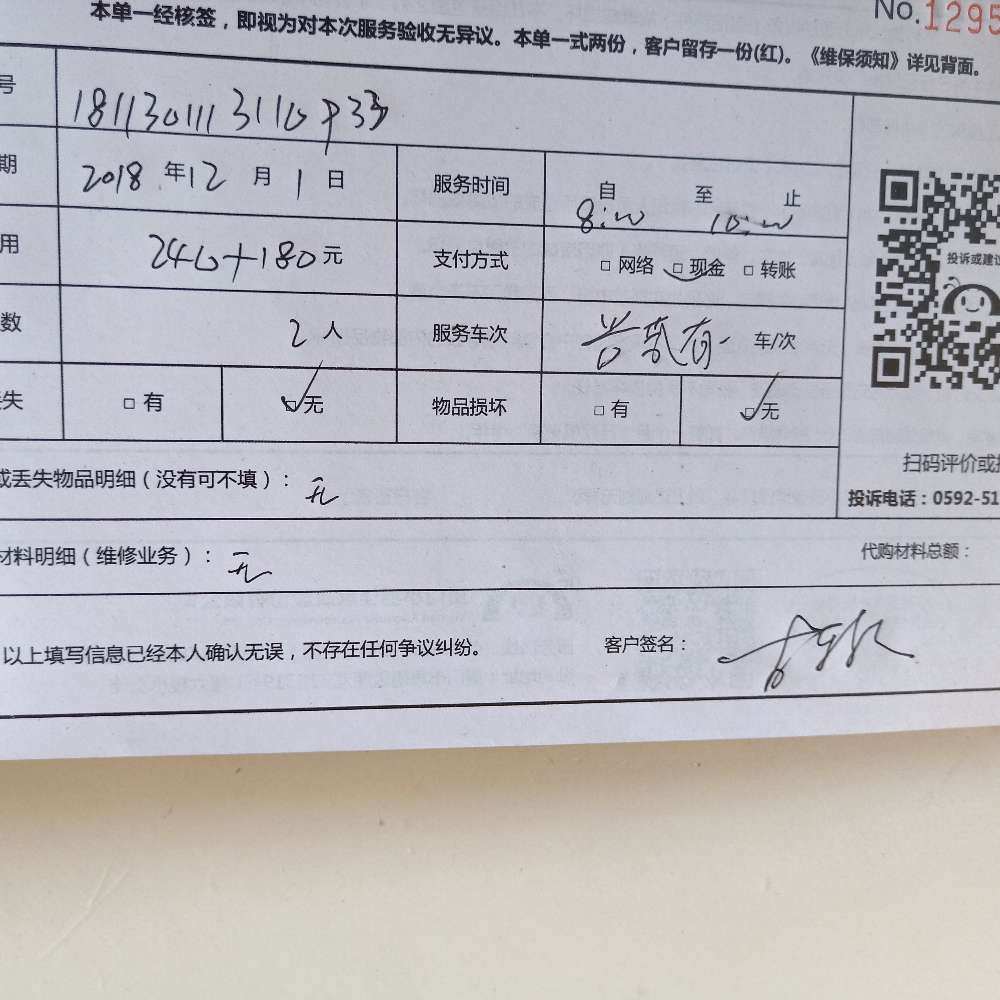 本单一经核签，即视为对本次服务验收无异议。本单一式两份，客户留存一份(红)。《维保须知》详见背面。
No.1295
号 1811301113110P33
期 2018 年 12 月 1 日 服务时间 自 8:00 至 10:00 止
用 240+180 元 支付方式 □ 网络 □ 现金 □ 转账
投诉或建议
数 2 人 服务车次 车/次
失 □ 有 □ 无 物品损坏 □ 有 □ 无
扫码评价或
或丢失物品明细（没有可不填）： 无
投诉电话：0592-51
材料明细（维修业务）： 无 代购材料总额：
以上填写信息已经本人确认无误，不存在任何争议纠纷。 客户签名：